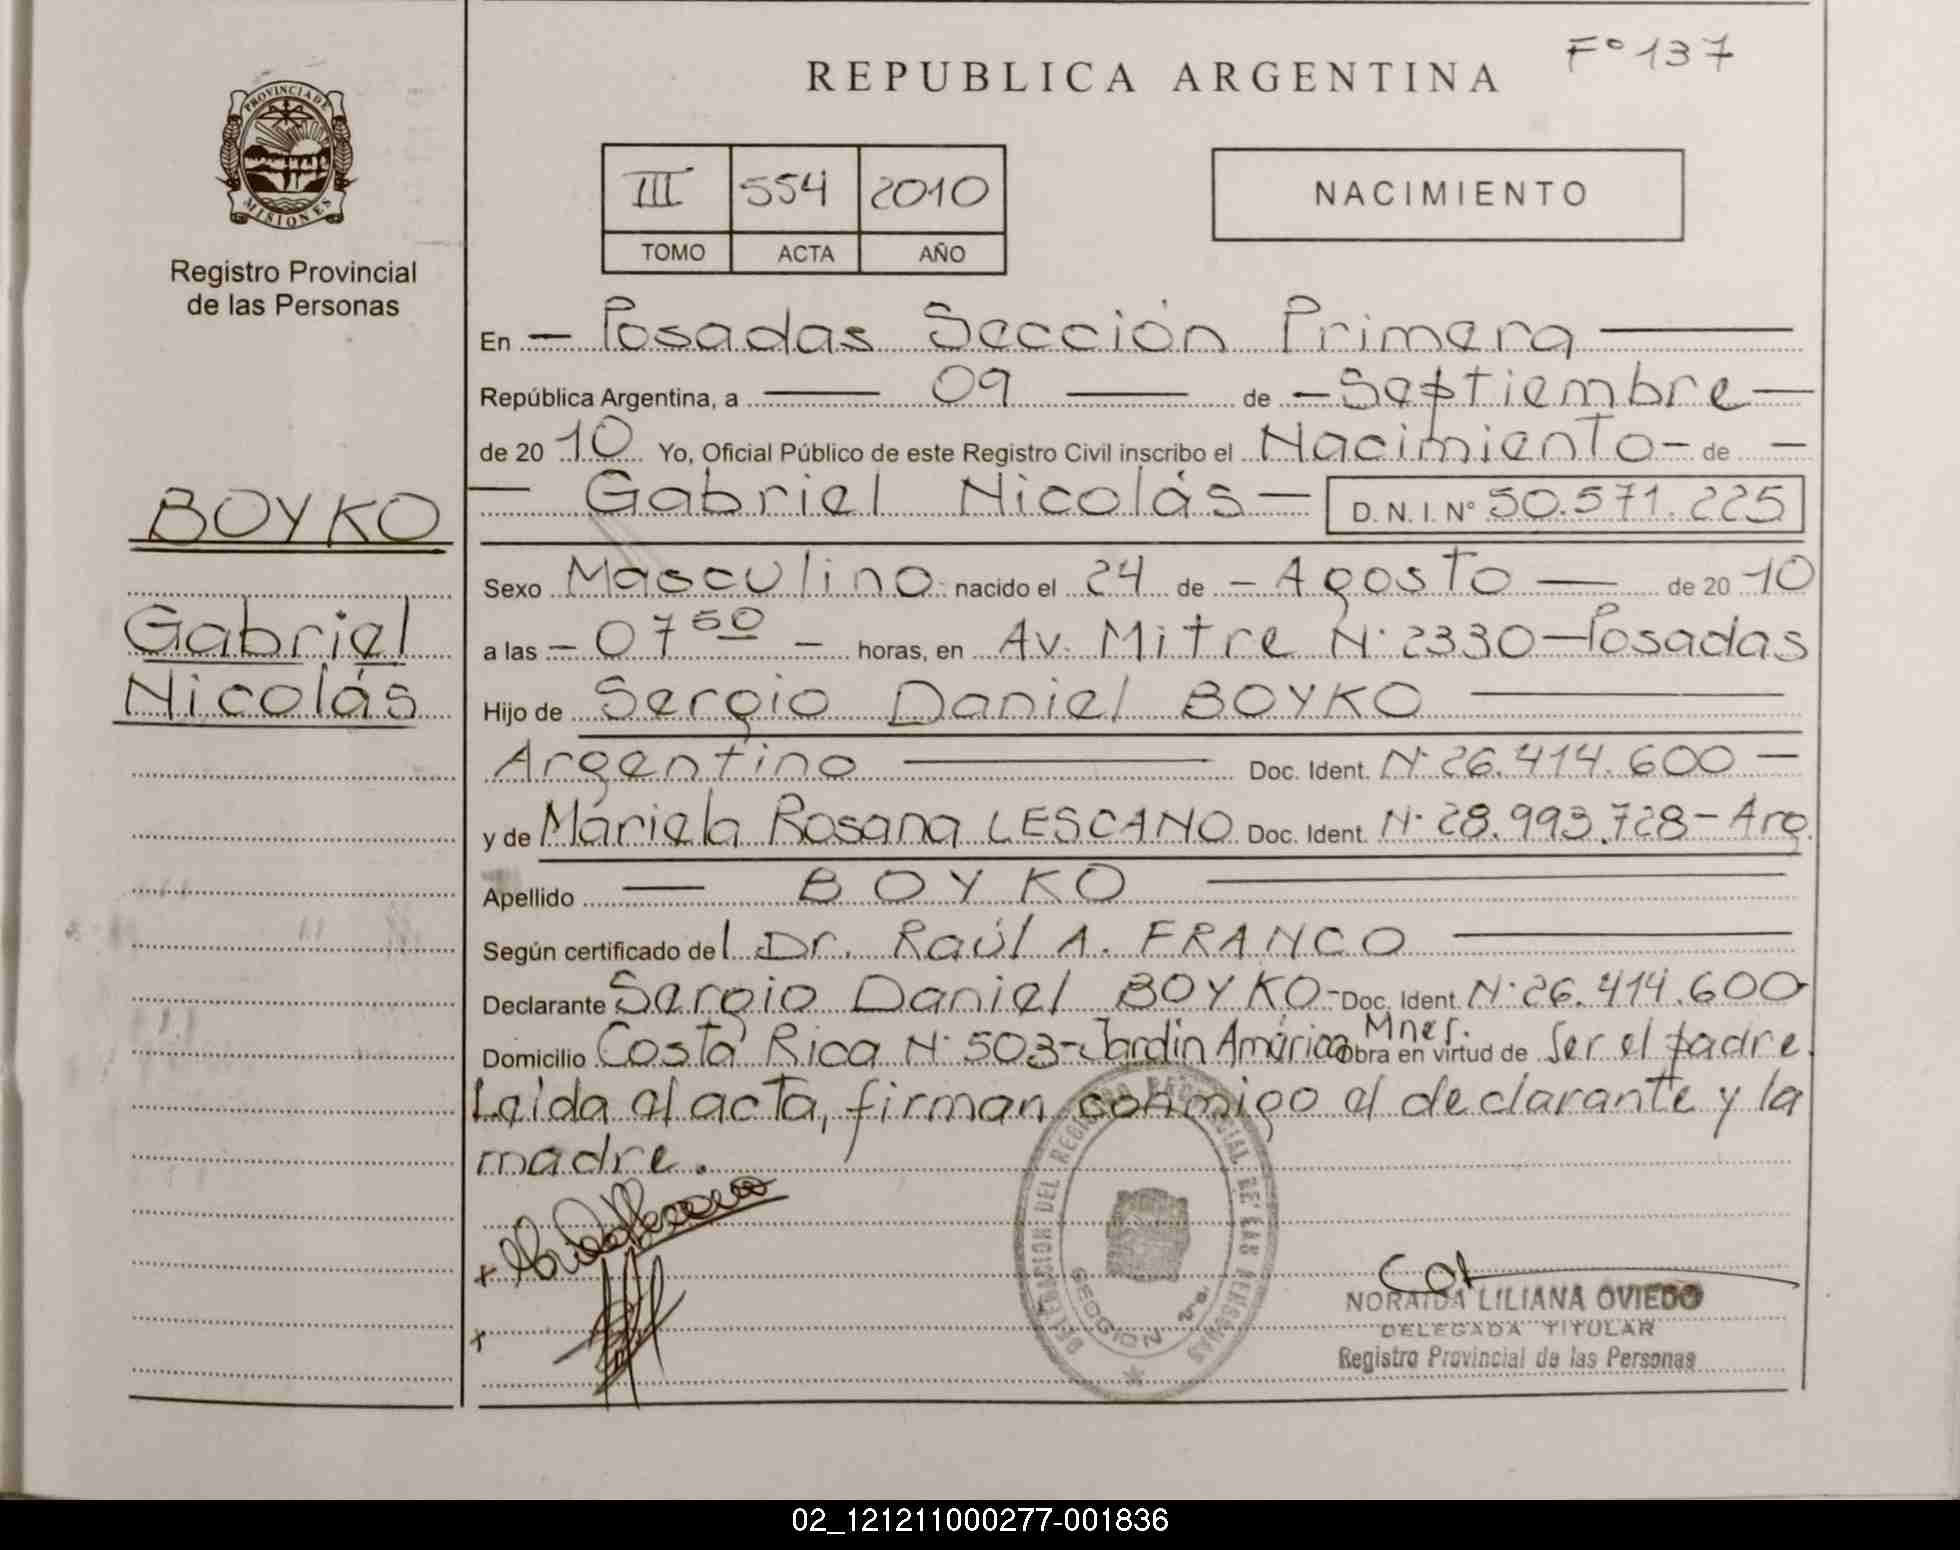 F° 137
REPUBLICA ARGENTINA
PROVINCIA DE
MISIONES
Registro Provincial
de las Personas
III 554 2010
TOMO ACTA AÑO
NACIMIENTO
En - Posadas Sección Primera
República Argentina, a 09 de - Septiembre -
de 20 10 Yo, Oficial Público de este Registro Civil inscribo el Nacimiento - de -
- Gabriel Nicolás - D.N.I. N° 50.571.225
BOYKO
Gabriel
Nicolás
Sexo Masculino nacido el 24 de - Agosto - de 20 10
a las - 07 50 - horas, en Av. Mitre N° 2330 - Posadas
Hijo de Sergio Daniel BOYKO
Argentino Doc. Ident. N° 26.414.600 -
y de Mariela Rosana LESCANO Doc. Ident. N° 28.993.728 - Arg.
Apellido - BOYKO
Según certificado del Dr. Raúl A. FRANCO
Declarante Sergio Daniel BOYKO - Doc. Ident. N° 26.414.600
Domicilio Costa Rica N° 503 - Jardín América Mnes. Obra en virtud de Ser el padre.
Leída el acta, firman conmigo el declarante y la
madre.
NORAIDA LILIANA OVIEDO
DELEGADA TITULAR
Registro Provincial de las Personas
02_121211000277-001836